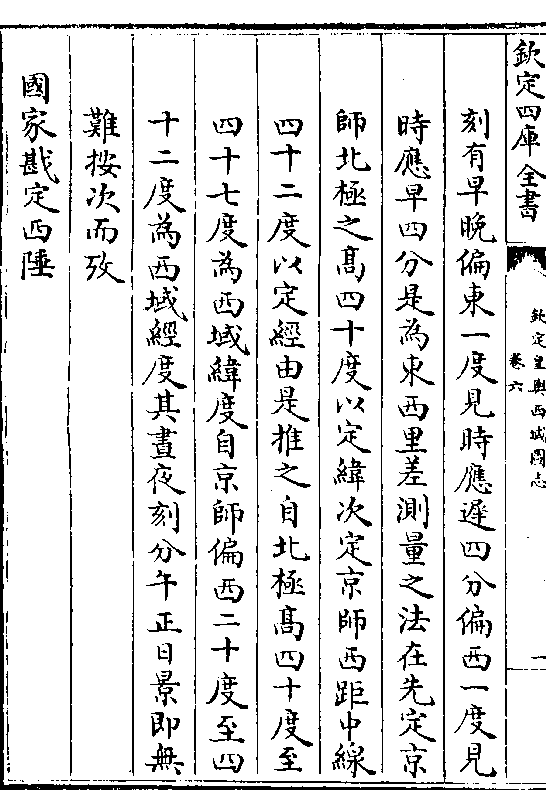 欽定四庫全書
欽定皇輿西域圖志
卷六
一
刻有早晚偏東一度見時應遲四分偏西一度見
時應早四分是為東西里差測量之法在先定京
師北極之髙四十度以定緯次定京師西距中線
四十二度以定經由是推之自北極髙四十度至
四十七度為西域緯度自京師偏西二十度至四
十二度為西域經度其晝夜刻分午正日景即無
難按次而攷
國家戡定西陲